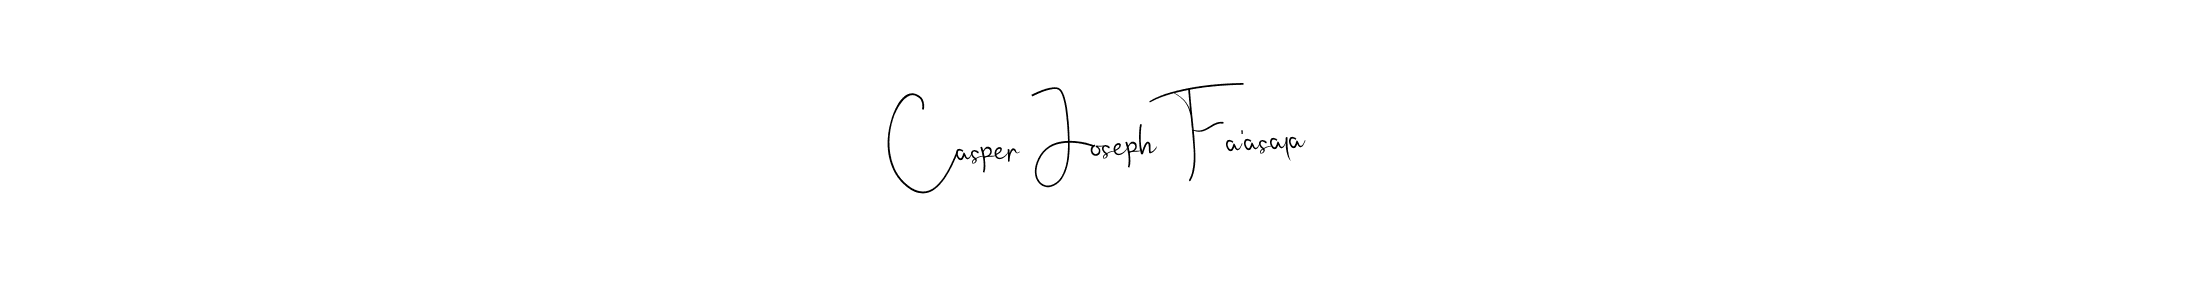 Casper Joseph Fa'asala